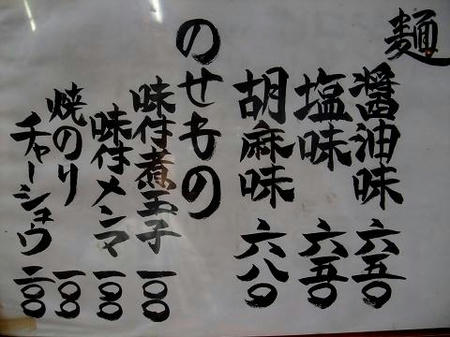 麺
醤油味 六五〇
塩味 六五〇
胡麻味 六八〇
のせもの
味付煮玉子 一〇〇
味付メンマ 一〇〇
焼のり 一〇〇
チャーシュウ 二〇〇